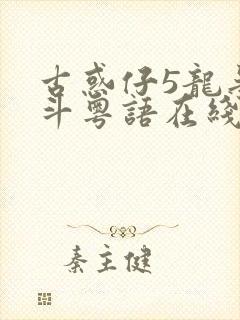 古惑仔5龍
斗粵語在綫
秦主健